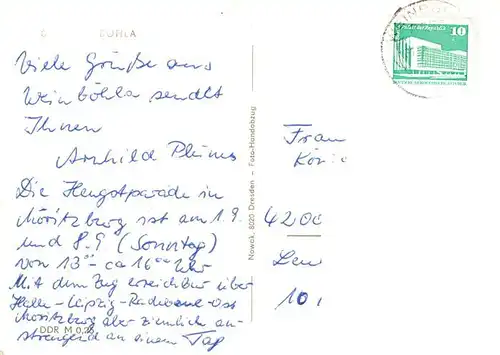 Viele Grüße aus
Weinböhla sendet
Ihnen
Die Hengstparade in
Moritzburg ist am 1.9.
und 8.9 (Sonntag)
von 13⁰⁰ - ca 16⁰⁰ Uhr
Mit dem Zug erreichbar über
Halle - Leipzig - Radebeul-Ost
Moritzburg aber ziemlich an-
strengend an einem Tag
DDR M 0,25
Nowak, 8020 Dresden - Foto-Handabzug
10
Frau
4200
10